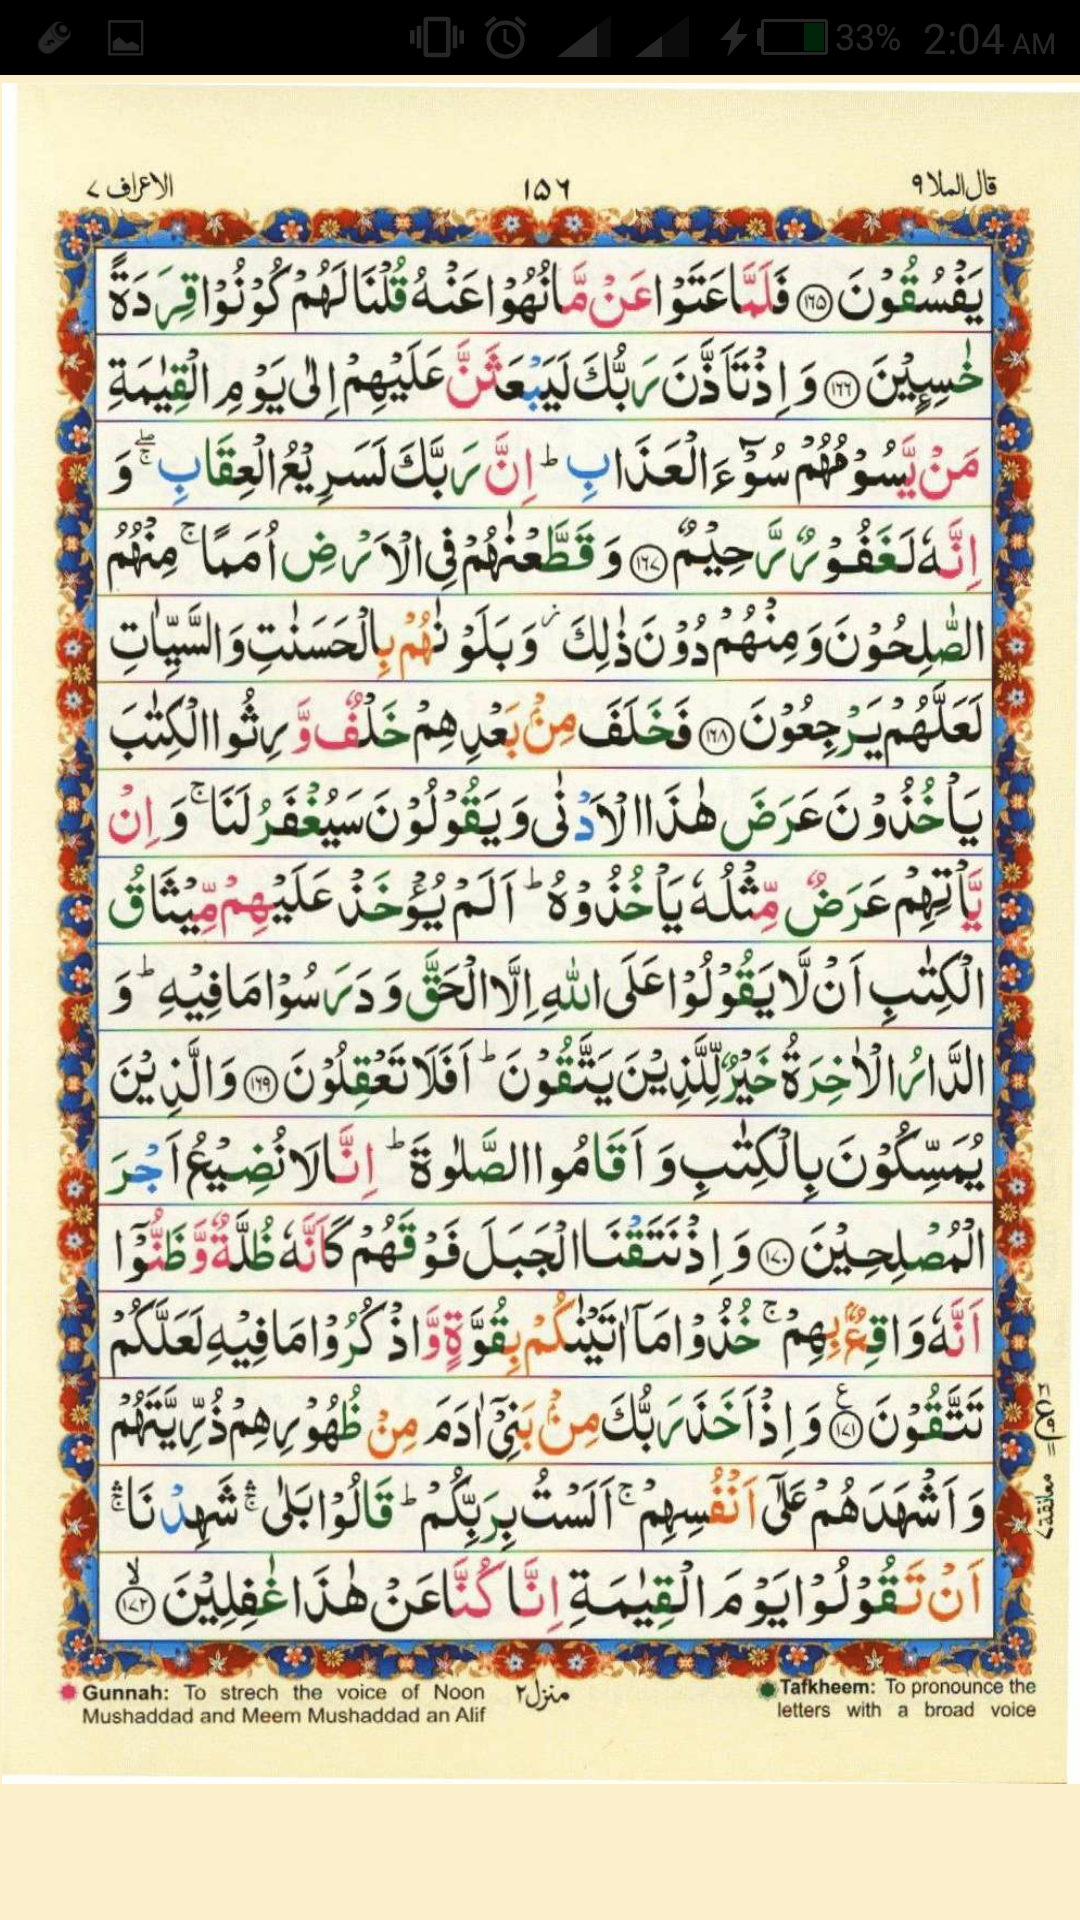 33% 2:04 AM
قال الملا ٩
١٥٦
الاعراف ٧
يَفْسُقُوْنَ ﴿١٦٥﴾ فَلَمَّا عَتَوْا عَنْ مَّا نُهُوْا عَنْهُ قُلْنَا لَهُمْ كُوْنُوْا قِرَدَةً
خٰسِـِٕيْنَ ﴿١٦٦﴾ وَاِذْ تَاَذَّنَ رَبُّكَ لَيَبْعَثَنَّ عَلَيْهِمْ اِلٰى يَوْمِ الْقِيٰمَةِ
مَنْ يَّسُوْمُهُمْ سُوْٓءَ الْعَذَابِ ؕ اِنَّ رَبَّكَ لَسَرِيْعُ الْعِقَابِ ۖۚ وَ
اِنَّهٗ لَغَفُوْرٌ رَّحِيْمٌ ﴿١٦٧﴾ وَقَطَّعْنٰهُمْ فِى الْاَرْضِ اُمَمًا ۚ مِنْهُمُ
الصّٰلِحُوْنَ وَمِنْهُمْ دُوْنَ ذٰلِكَ ؗ وَبَلَوْنٰهُمْ بِالْحَسَنٰتِ وَالسَّيِّاٰتِ
لَعَلَّهُمْ يَرْجِعُوْنَ ﴿١٦٨﴾ فَخَلَفَ مِنْۢ بَعْدِهِمْ خَلْفٌ وَّرِثُوا الْكِتٰبَ
يَاْخُذُوْنَ عَرَضَ هٰذَا الْاَدْنٰى وَيَقُوْلُوْنَ سَيُغْفَرُ لَنَا ۚ وَاِنْ
يَّاْتِهِمْ عَرَضٌ مِّثْلُهٗ يَاْخُذُوْهُ ؕ اَلَمْ يُؤْخَذْ عَلَيْهِمْ مِّيْثَاقُ
الْكِتٰبِ اَنْ لَّا يَقُوْلُوْا عَلَى اللّٰهِ اِلَّا الْحَقَّ وَدَرَسُوْا مَا فِيْهِ ؕ وَ
الدَّارُ الْاٰخِرَةُ خَيْرٌ لِّلَّذِيْنَ يَتَّقُوْنَ ؕ اَفَلَا تَعْقِلُوْنَ ﴿١٦٩﴾ وَالَّذِيْنَ
يُمَسِّكُوْنَ بِالْكِتٰبِ وَاَقَامُوا الصَّلٰوةَ ؕ اِنَّا لَا نُضِيْعُ اَجْرَ
الْمُصْلِحِيْنَ ﴿١٧٠﴾ وَاِذْ نَتَقْنَا الْجَبَلَ فَوْقَهُمْ كَاَنَّهٗ ظُلَّةٌ وَّظَنُّوْٓا
اَنَّهٗ وَاقِعٌۢ بِهِمْ ۚ خُذُوْا مَاۤ اٰتَيْنٰكُمْ بِقُوَّةٍ وَّاذْكُرُوْا مَا فِيْهِ لَعَلَّكُمْ
تَتَّقُوْنَ ﴿١٧١﴾ ع وَاِذْ اَخَذَ رَبُّكَ مِنْۢ بَنِيْٓ اٰدَمَ مِنْ ظُهُوْرِهِمْ ذُرِّيَّتَهُمْ
وَاَشْهَدَهُمْ عَلٰٓى اَنْفُسِهِمْ ۚ اَلَسْتُ بِرَبِّكُمْ ؕ قَالُوْا بَلٰى ۛۚ شَهِدْنَا ۛۚ
اَنْ تَقُوْلُوْا يَوْمَ الْقِيٰمَةِ اِنَّا كُنَّا عَنْ هٰذَا غٰفِلِيْنَ ﴿١٧٢﴾ ۙ
معانقة ٧
Gunnah: To strech the voice of Noon
Mushaddad and Meem Mushaddad an Alif
منزل ٢
Tafkheem: To pronounce the
letters with a broad voice